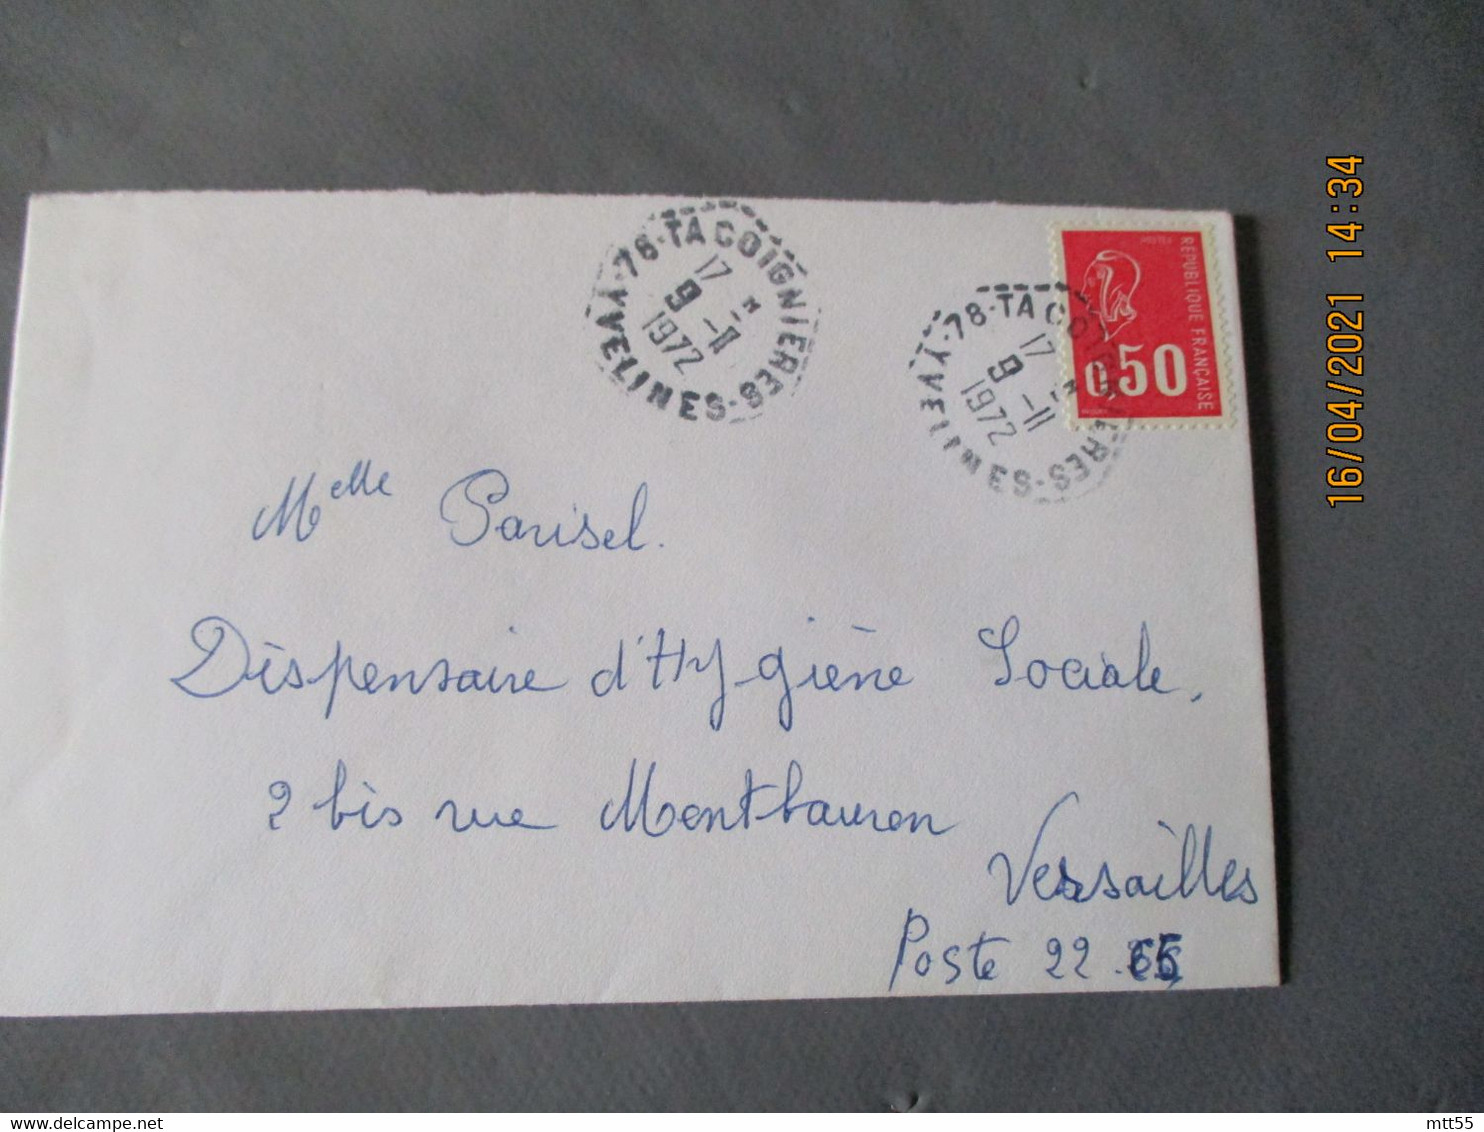 78-TA COIGNIERES-S
YVELINES
17 H
9-11
1972
78-TA COIGNIERES-S
YVELINES
17 H
9-11
1972
RÉPUBLIQUE FRANÇAISE
0,50
Melle Parisel.
Dispensaire d'Hygiène Sociale,
2 bis rue Montbauron
Versailles
Poste 22.
16/04/2021 14:34
mtt55